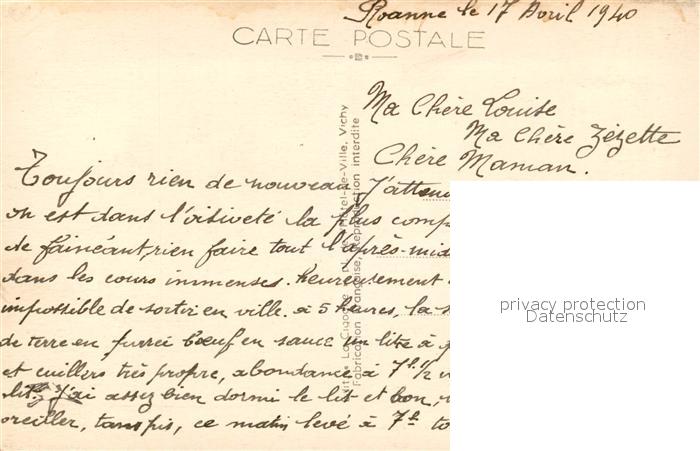 Roanne le 17 Avril 1940
CARTE POSTALE
Ma Chère Louise
Ma Chère Zézette
Chère Maman.
Toujours rien de nouveau J'atten
on est dans l'oisiveté la plus comp
de fainéant, rien faire tout l'après-mid
dans les cours immenses. heureusement
impossible de sortir en ville. à 5 heures, la s
de terre en purée bœuf en sauce un litre à
et cuillers très propre, abondance à 7h 1/2
lit. j'ai assez bien dormi le lit et bon,
oreiller, tant pis, ce matin levé à 7h to
La Cigogne, Hôtel-de-Ville, Vichy
Fabrication Française, Reproduction interdite
privacy protection
Datenschutz